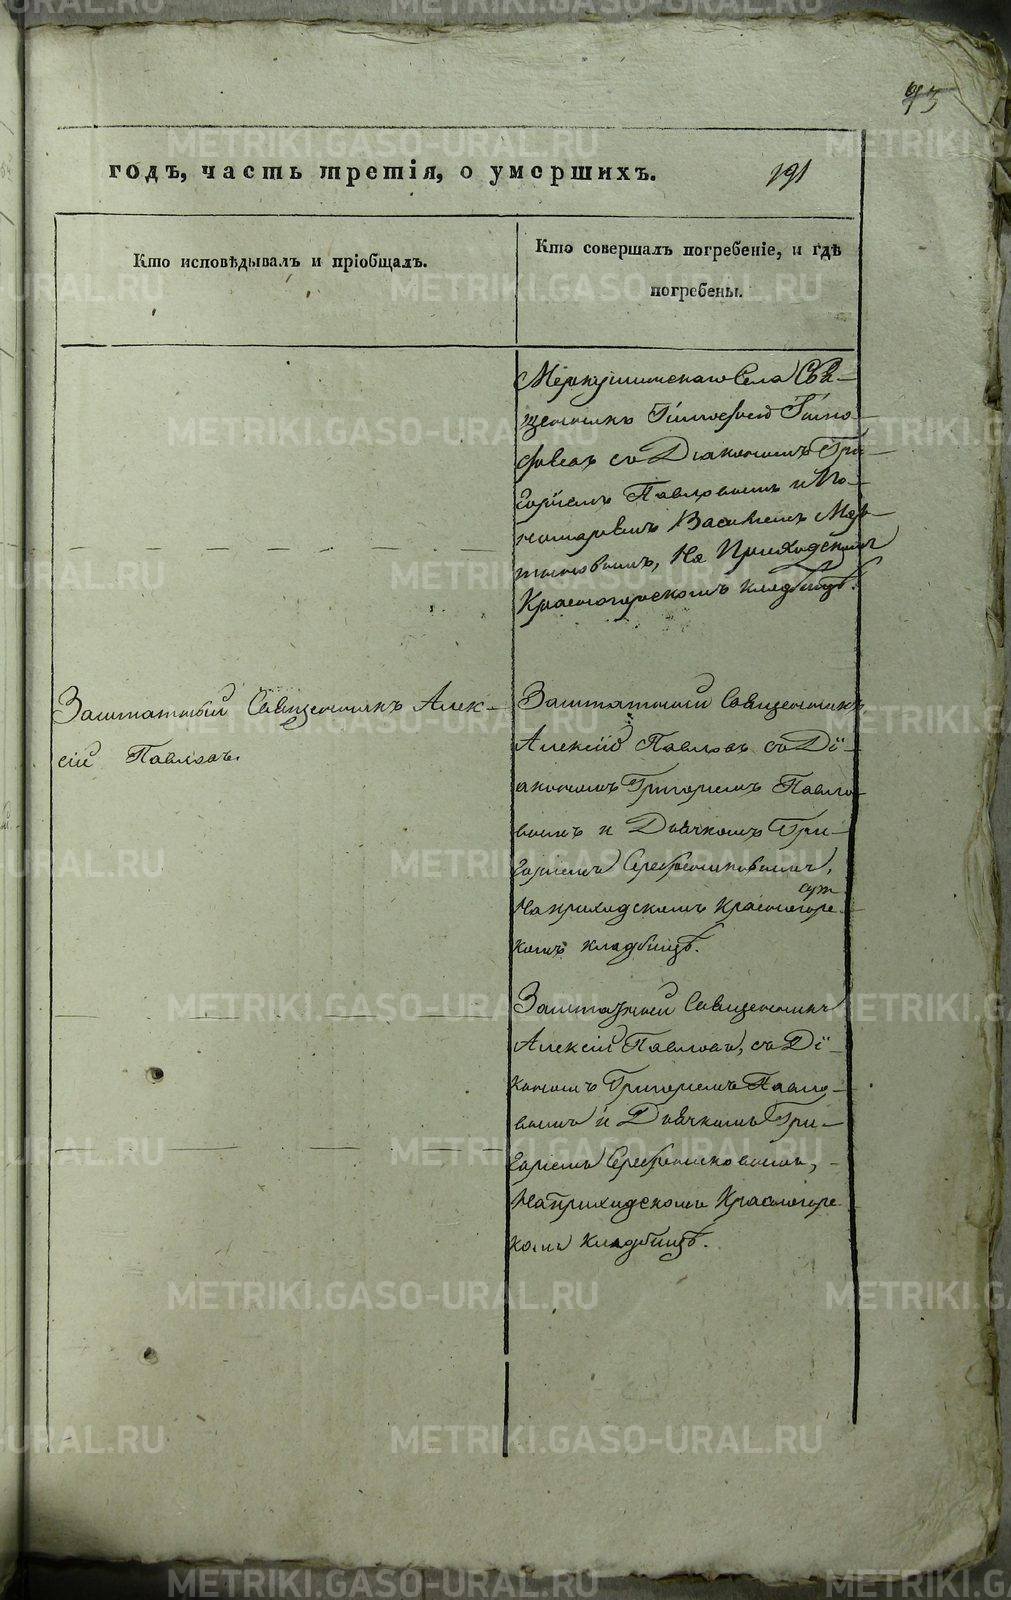 93
годъ, часть третія, о умершихъ.
191
Кто исповѣдывалъ и пріобщалъ.
Кто совершалъ погребеніе, и гдѣ
погребены.
Меркушинскаго Села Свя-
щенникъ Тимофей Тимо-
феевъ со Діакономъ Гри-
горіемъ Павловымъ и По-
номаремъ Василіемъ Мар-
тыновымъ, На Приходскомъ
Красногорскомъ кладбищѣ.
Заштатный Священникъ Алек-
сій Павловъ.
Заштатный Священникъ
Алексій Павловъ со Ді-
акономъ Григоріемъ Павло-
вымъ и Дьячкомъ Гри-
горіемъ Серебренниковымъ,
На приходскомъ Красногорс-
комъ кладбищѣ.
Заштатный Священникъ
Алексій Павловъ, со Ді-
кономъ Григоріемъ Павло-
вымъ и Дьячкомъ Гри-
горіемъ Серебренниковымъ,
На приходскомъ Красногорс
комъ кладбищѣ.
METRIKI.GASO-URAL.RU